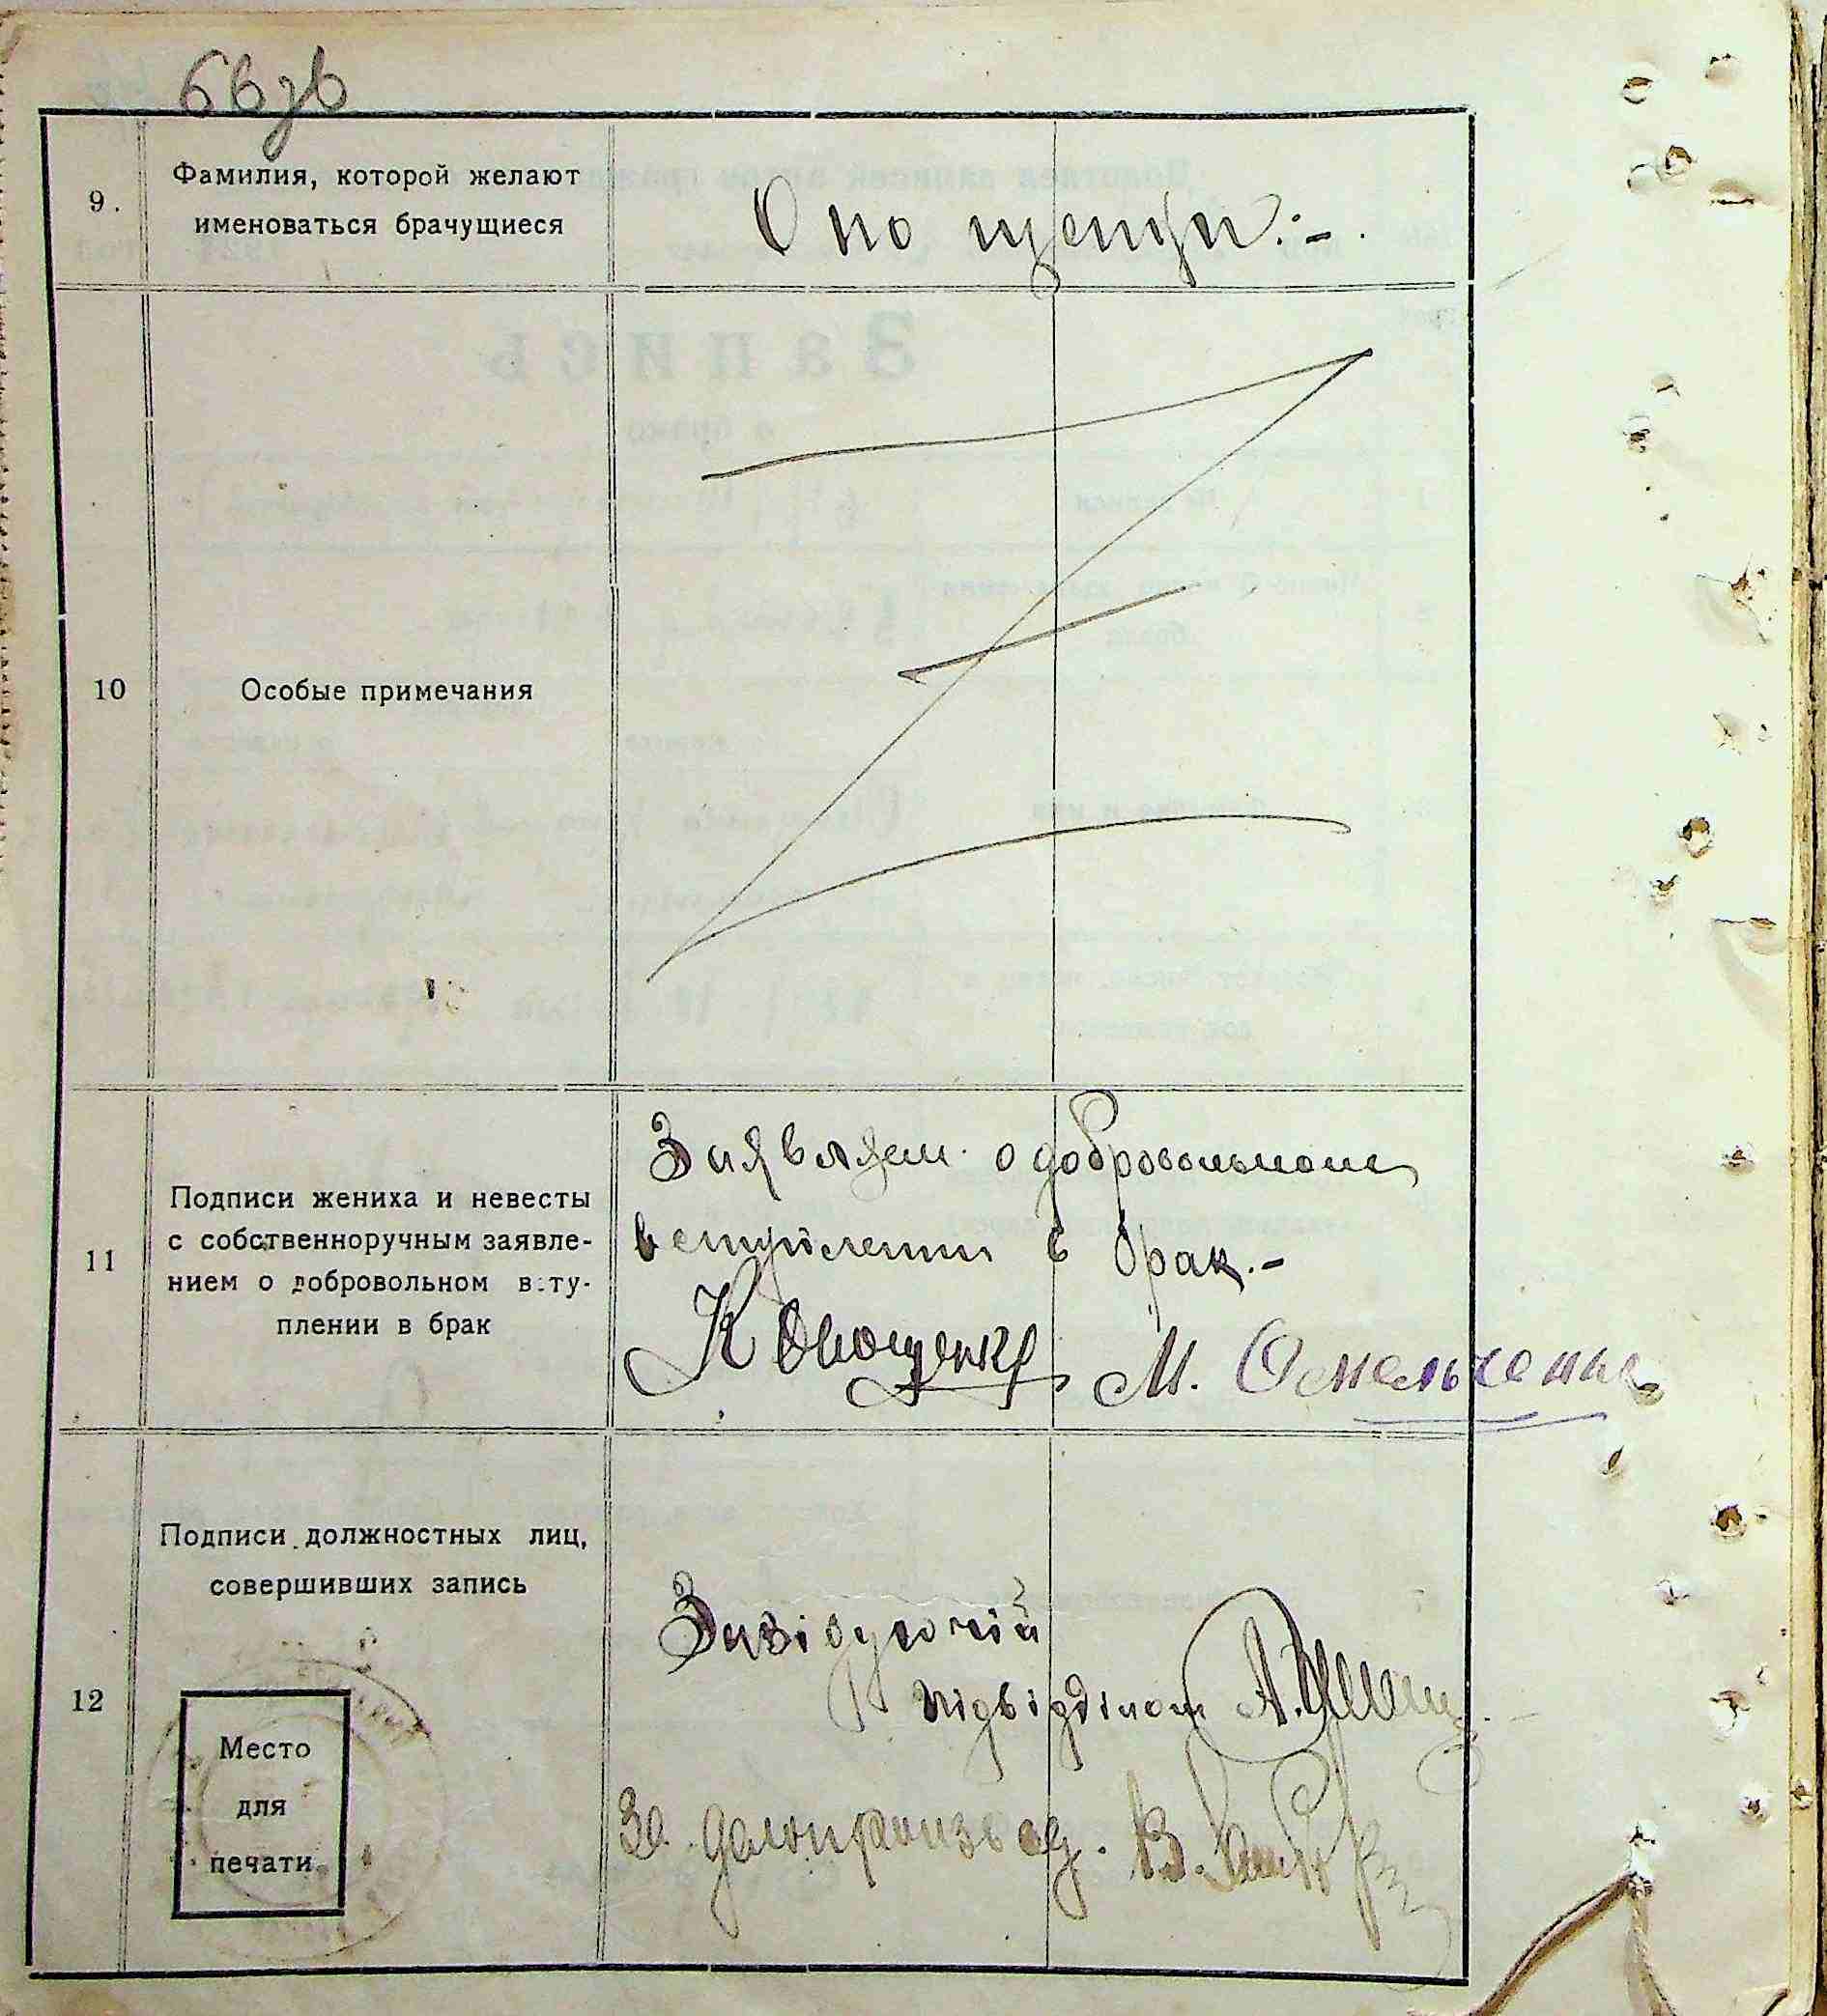 66зв
9.
Фамилия, которой желают
именоваться брачущиеся
Онощенки.-.
10
Особые примечания
11
Подписи жениха и невесты
с собственноручным заявле-
нием о добровольном всту-
плении в брак
Заявляем о добровольном
вступлении в брак.-
К Онощенко М. Омельченко
12
Подписи должностных лиц,
совершивших запись
Завідуючій
підвідділом А.
За діловод. В.
Место
для
печати